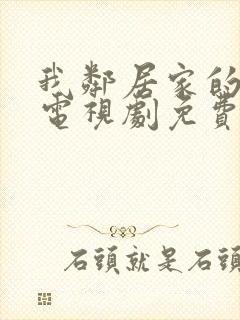 我鄰居家的
電視劇免費
石頭就是石頭